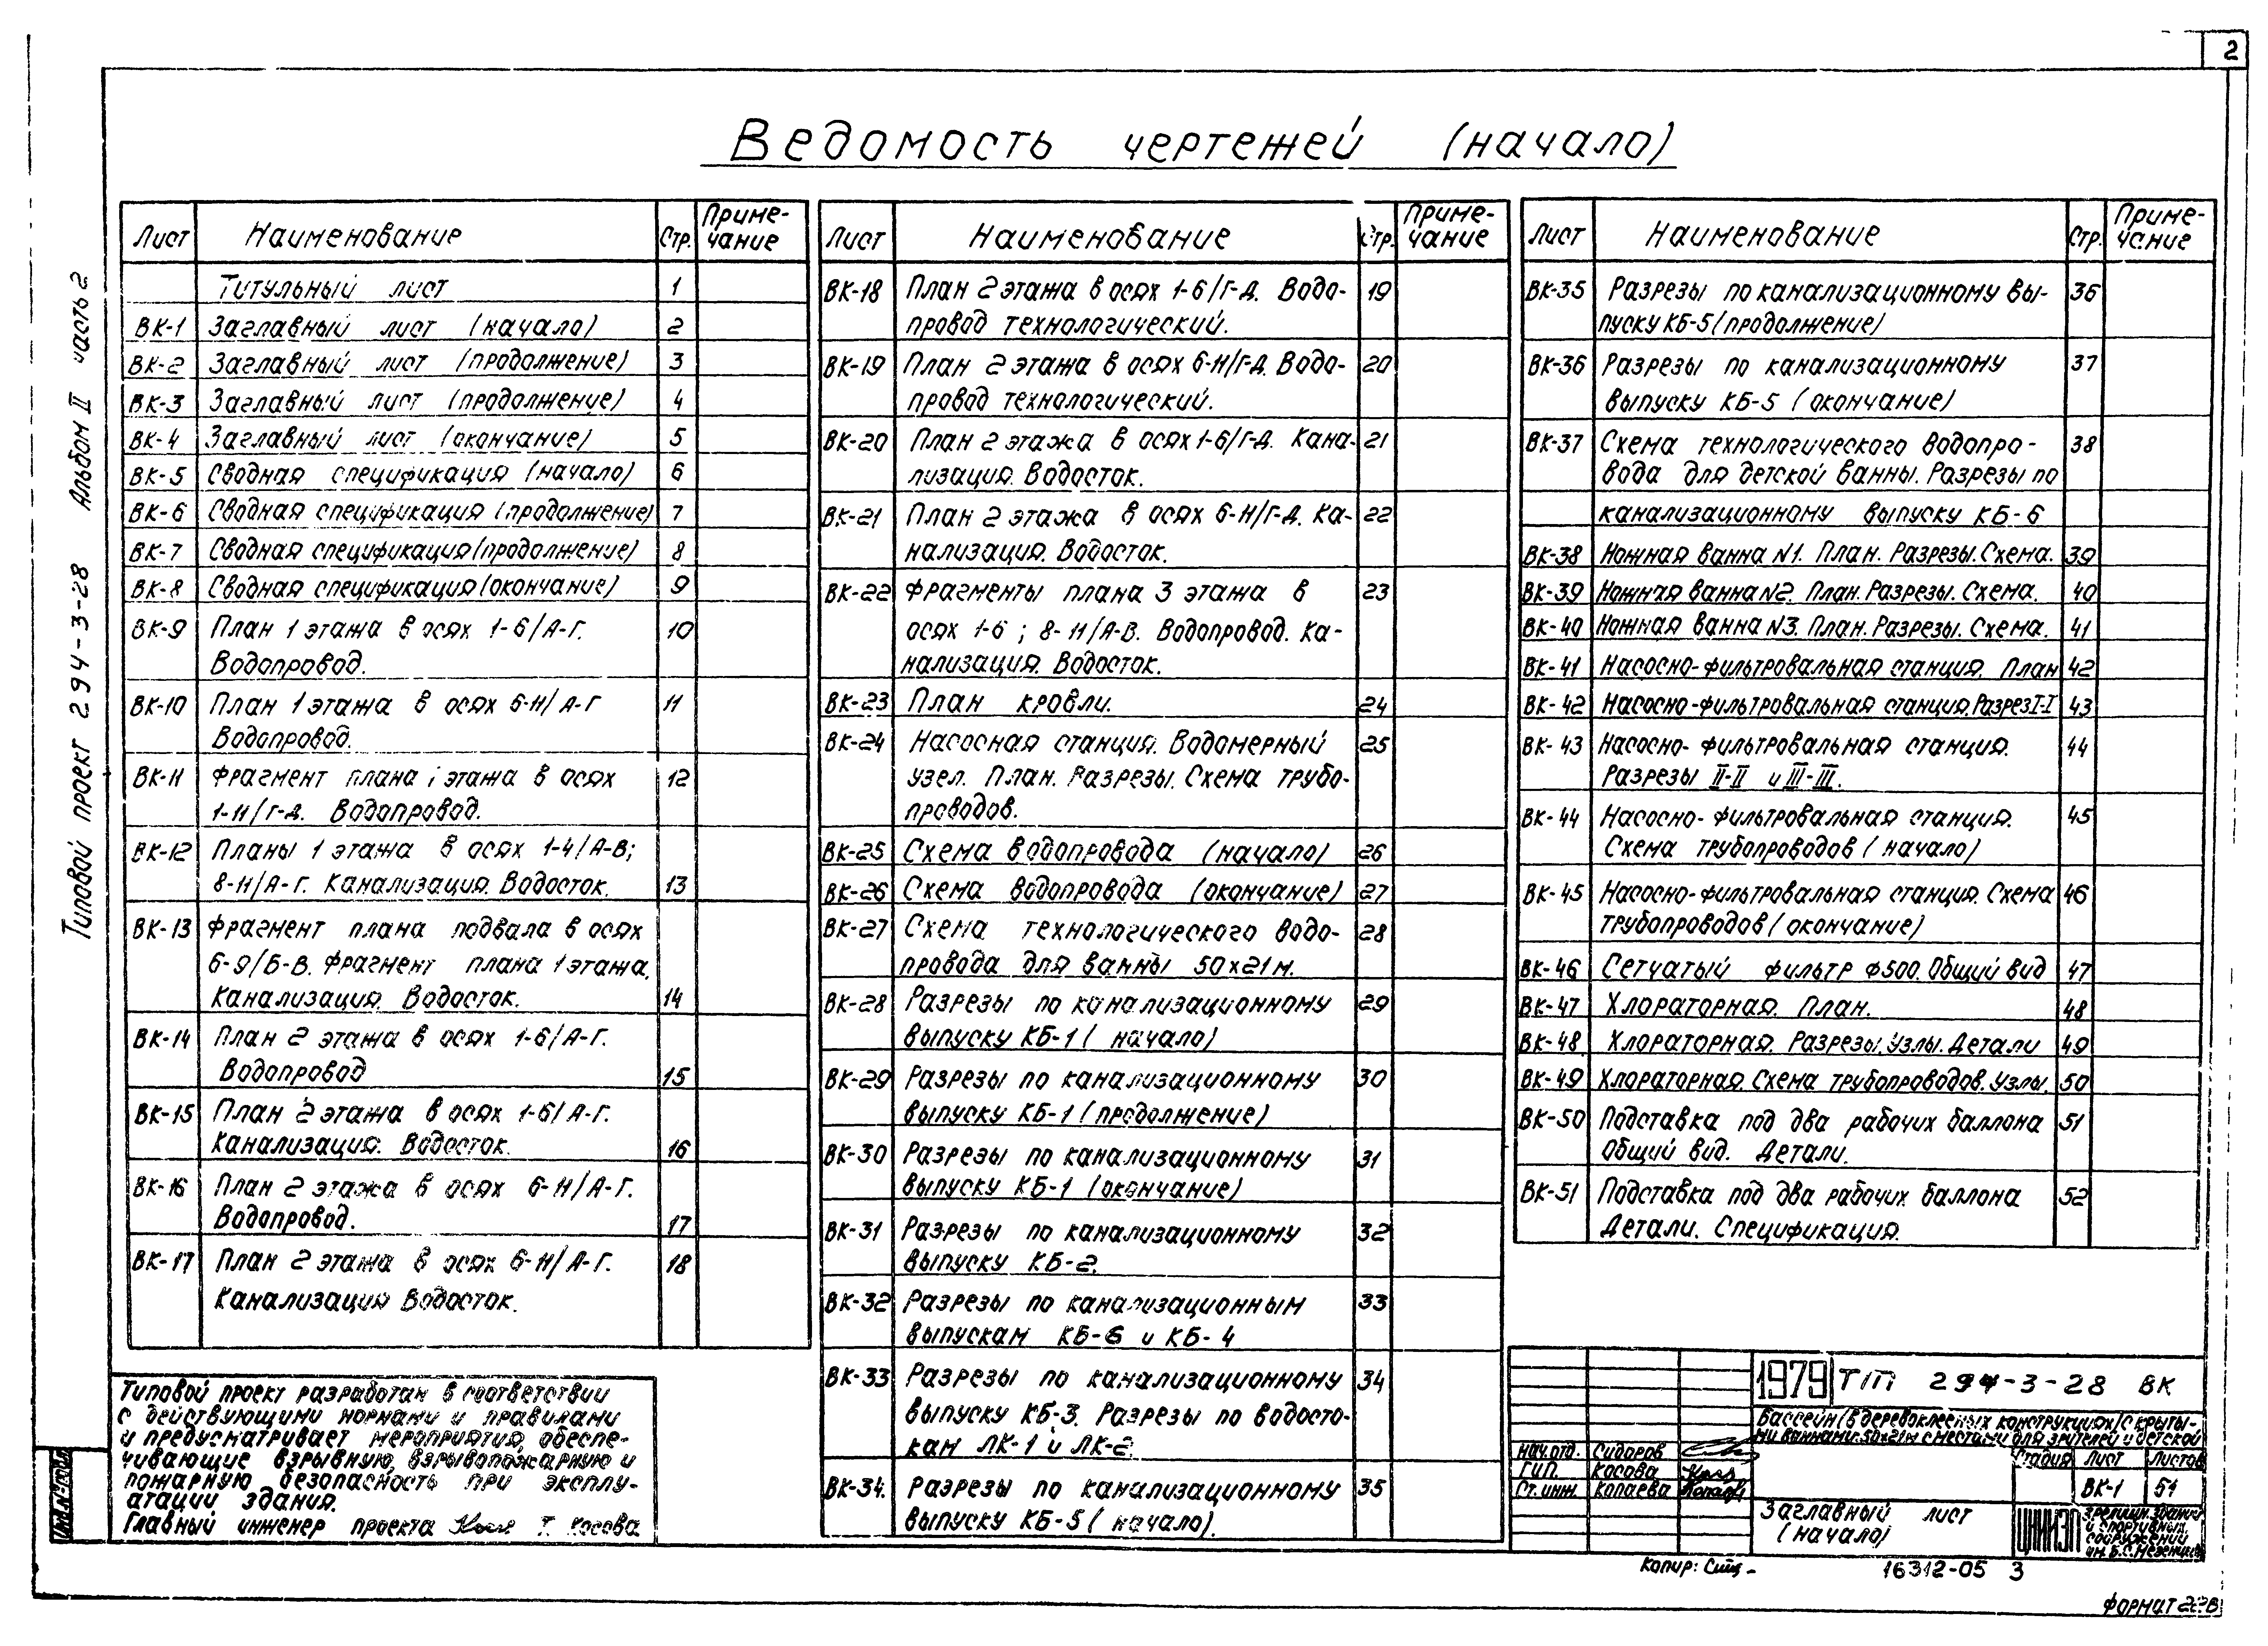 2
Ведомость чертежей (начало)
Типовой проект 294-3-28 Альбом II часть 2
Лист Наименование Стр. Приме-
чание
Титульный лист 1
ВК-1 Заглавный лист (начало) 2
ВК-2 Заглавный лист (продолжение) 3
ВК-3 Заглавный лист (продолжение) 4
ВК-4 Заглавный лист (окончание) 5
ВК-5 Сводная спецификация (начало) 6
ВК-6 Сводная спецификация (продолжение) 7
ВК-7 Сводная спецификация (продолжение) 8
ВК-8 Сводная спецификация (окончание) 9
ВК-9 План 1 этажа в осях 1-6/А-Г. 10
Водопровод.
ВК-10 План 1 этажа в осях 6-11/А-Г 11
Водопровод.
ВК-11 Фрагмент плана 1 этажа в осях 12
1-11/Г-Д. Водопровод.
ВК-12 Планы 1 этажа в осях 1-4/А-В;
8-11/А-Г. Канализация. Водосток. 13
ВК-13 Фрагмент плана подвала в осях
6-9/Б-В. Фрагмент плана 1 этажа.
Канализация. Водосток. 14
ВК-14 План 2 этажа в осях 1-6/А-Г.
Водопровод 15
ВК-15 План 2 этажа в осях 1-6/А-Г.
Канализация. Водосток. 16
ВК-16 План 2 этажа в осях 6-11/А-Г.
Водопровод. 17
ВК-17 План 2 этажа в осях 6-11/А-Г. 18
Канализация Водосток.
Лист Наименование Стр. Приме-
чание
ВК-18 План 2 этажа в осях 1-6/Г-Д. Водо- 19
провод технологический.
ВК-19 План 2 этажа в осях 6-11/Г-Д. Водо- 20
провод технологический.
ВК-20 План 2 этажа в осях 1-6/Г-Д. Кана- 21
лизация. Водосток.
ВК-21 План 2 этажа в осях 6-11/Г-Д. Ка- 22
нализация. Водосток.
ВК-22 Фрагменты плана 3 этажа в 23
осях 1-6; 8-11/А-В. Водопровод. Ка-
нализация. Водосток.
ВК-23 План кровли. 24
ВК-24 Насосная станция. Водомерный 25
узел. План. Разрезы. Схема трубо-
проводов.
ВК-25 Схема водопровода (начало) 26
ВК-26 Схема водопровода (окончание) 27
ВК-27 Схема технологического водо- 28
провода для ванны 50х21м.
ВК-28 Разрезы по канализационному 29
выпуску КБ-1 (начало)
ВК-29 Разрезы по канализационному 30
выпуску КБ-1 (продолжение)
ВК-30 Разрезы по канализационному 31
выпуску КБ-1 (окончание)
ВК-31 Разрезы по канализационному 32
выпуску КБ-2.
ВК-32 Разрезы по канализационным 33
выпускам КБ-6 и КБ-4
ВК-33 Разрезы по канализационному 34
выпуску КБ-3. Разрезы по водосто-
кам ЛК-1 и ЛК-2
ВК-34. Разрезы по канализационному 35
выпуску КБ-5 (начало).
Лист Наименование Стр. Приме-
чание
ВК-35 Разрезы по канализационному вы- 36
пуску КБ-5 (продолжение)
ВК-36 Разрезы по канализационному 37
выпуску КБ-5 (окончание)
ВК-37 Схема технологического водопро- 38
вода для детской ванны. Разрезы по
канализационному выпуску КБ-6
ВК-38 Ножная ванна N1. План. Разрезы. Схема. 39
ВК-39 Ножная ванна N2. План. Разрезы. Схема. 40
ВК-40 Ножная ванна N3. План. Разрезы. Схема. 41
ВК-41 Насосно-фильтровальная станция. План 42
ВК-42 Насосно-фильтровальная станция. Разрез I-I 43
ВК-43 Насосно-фильтровальная станция. 44
Разрезы II-II и III-III.
ВК-44 Насосно-фильтровальная станция. 45
Схема трубопроводов (начало)
ВК-45 Насосно-фильтровальная станция. Схема 46
трубопроводов (окончание)
ВК-46 Сетчатый фильтр Ф500. Общий вид 47
ВК-47 Хлораторная. План. 48
ВК-48 Хлораторная. Разрезы. Узлы. Детали 49
ВК-49 Хлораторная. Схема трубопроводов. Узлы. 50
ВК-50 Подставка под два рабочих баллона 51
Общий вид. Детали.
ВК-51 Подставка под два рабочих баллона 52
Детали. Спецификация.
Типовой проект разработан в соответствии
с действующими нормами и правилами
и предусматривает мероприятия, обеспе-
чивающие взрывную, взрывопожарную и
пожарную безопасность при эксплу-
атации здания.
Главный инженер проекта Т. Косова
1979 ТП 294-3-28 ВК
Бассейн (в деревоклееных конструкциях) с крыты-
ми ваннами 50х21м с местами для зрителей и детской
Нач.отд. Сидоров
ГИП. Косова
Ст.инж. Копаева
Стадия Лист Листов
ВК-1 51
Заглавный лист
(начало)
ЦНИИЭП
зрелищн. зданий
и спортивных
сооружений
им. Б.С. Мезенцева
Копир:
16312-05 3
Формат